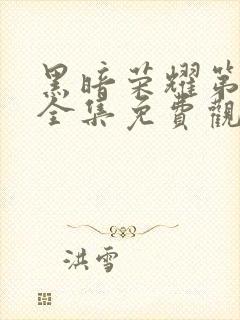 黑暗荣耀第
全集免費觀
洪雪